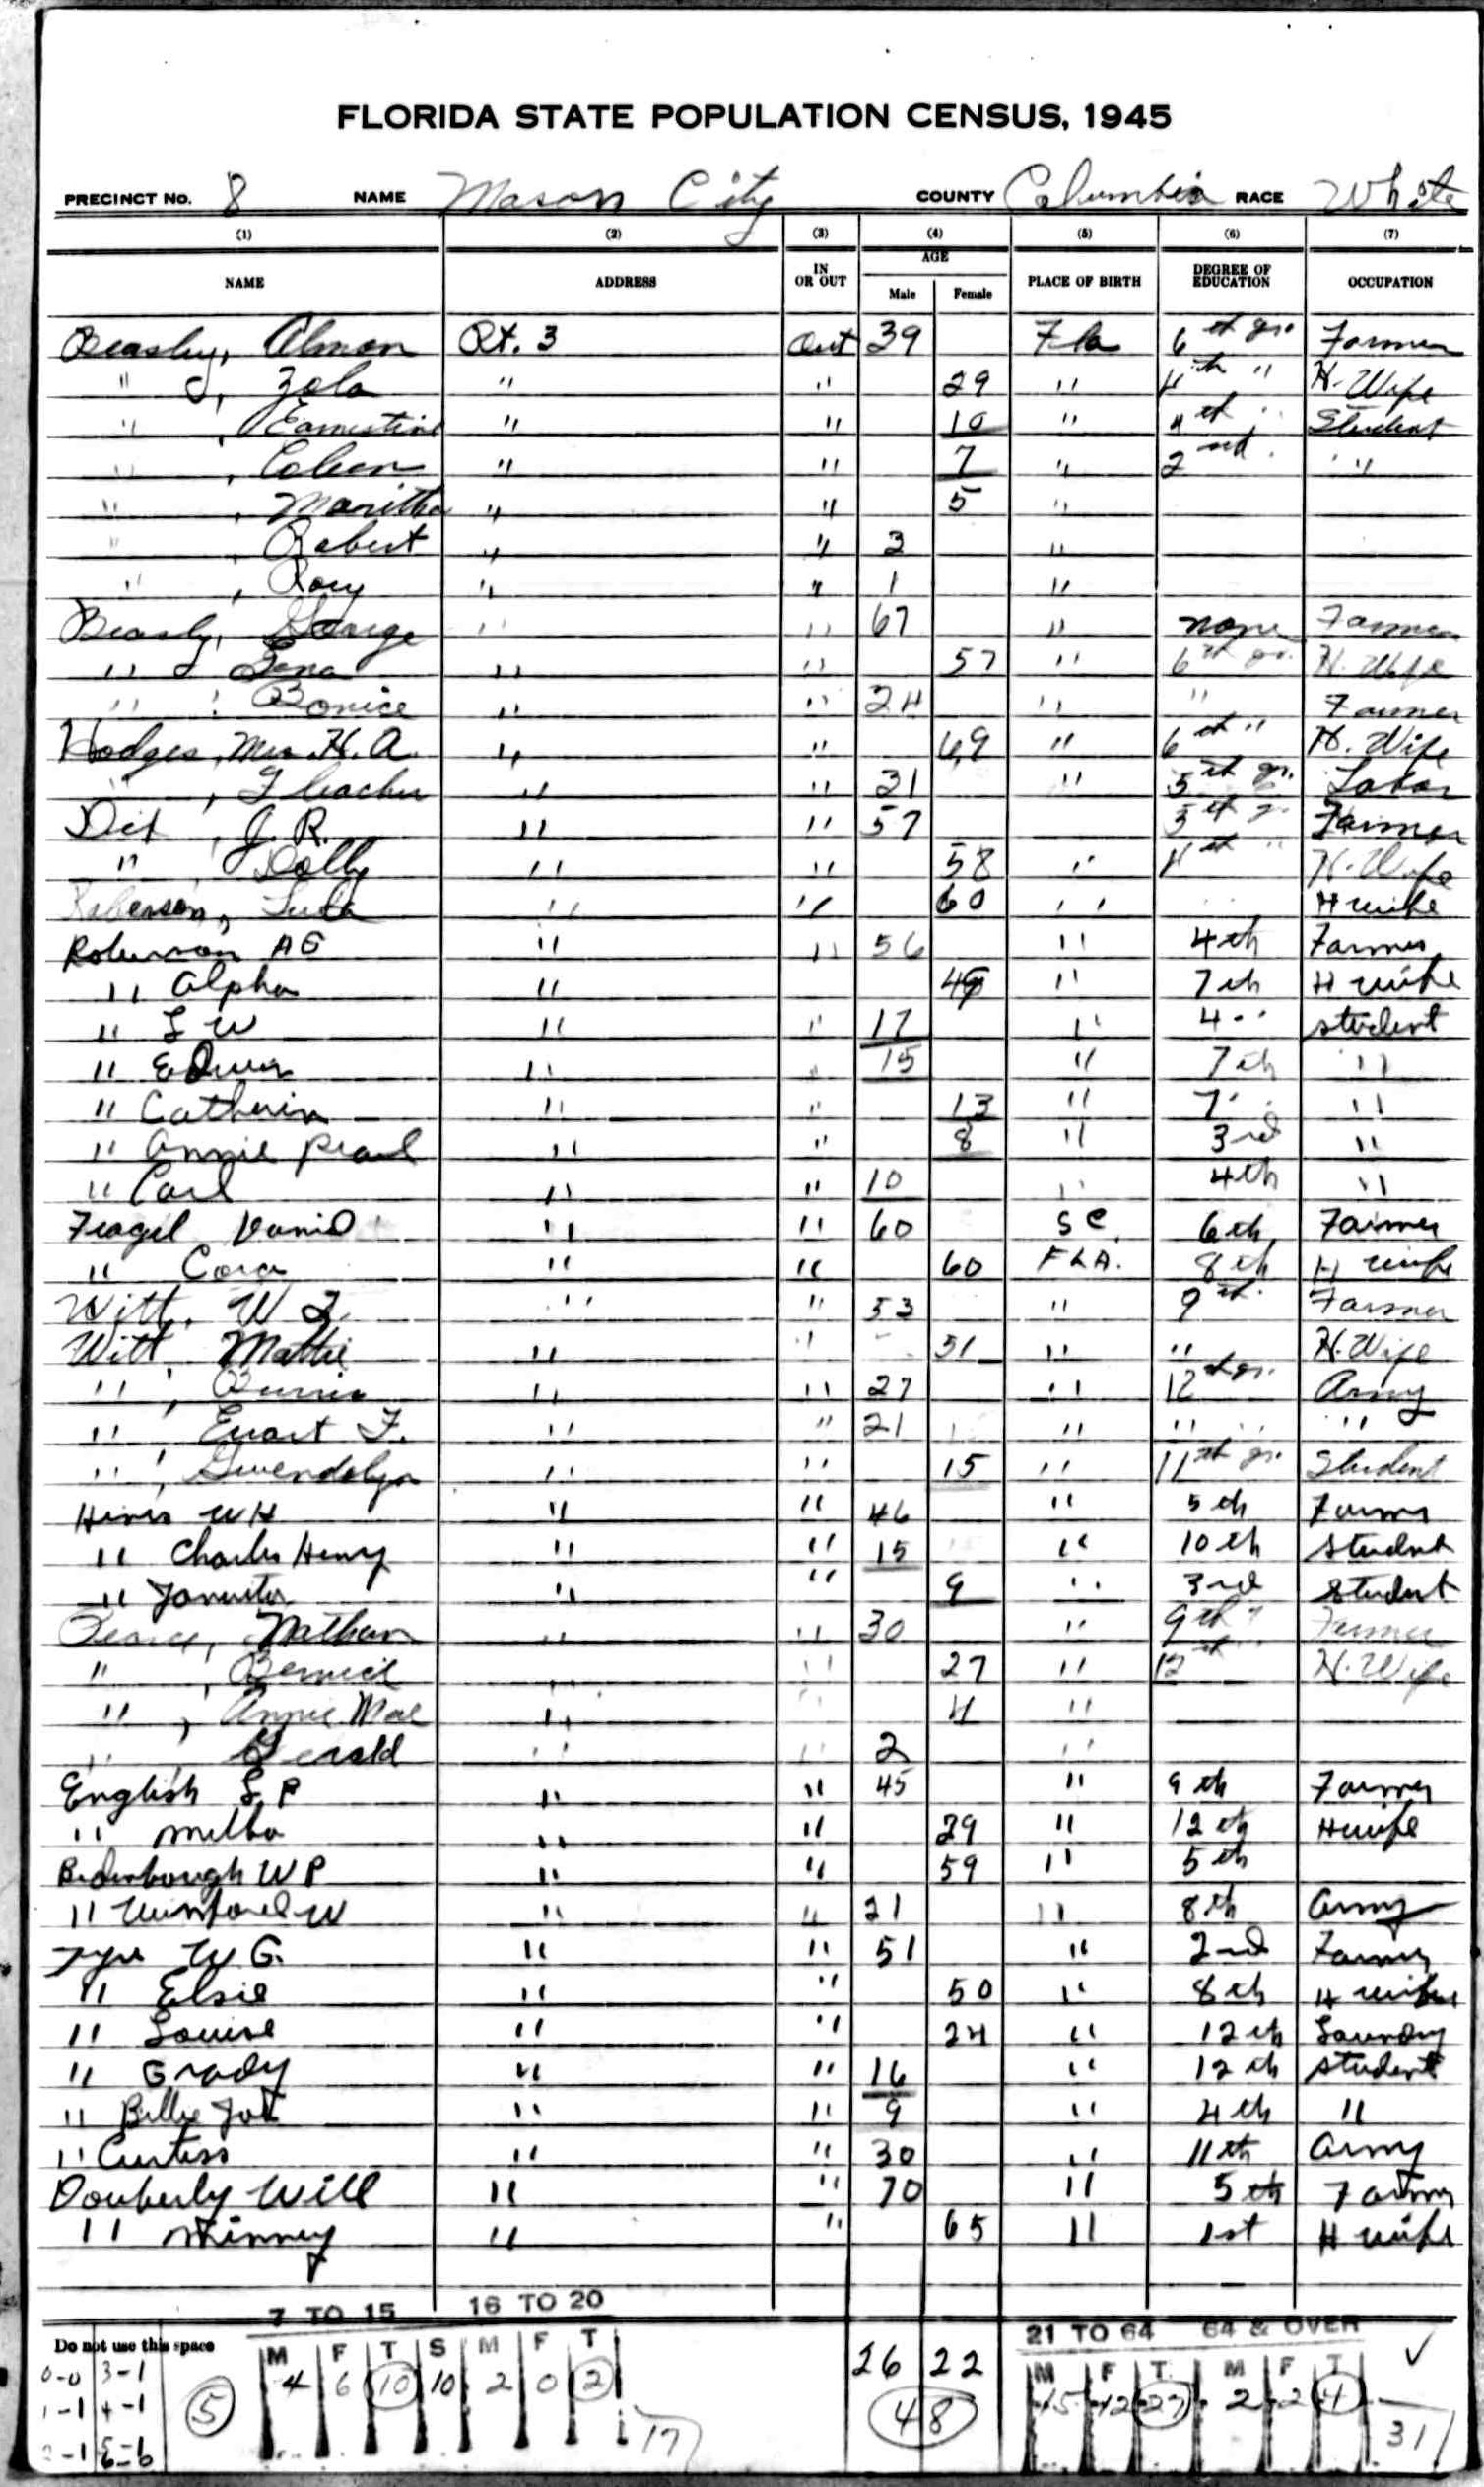 FLORIDA STATE POPULATION CENSUS, 1945
PRECINCT No. 8 NAME Mason City COUNTY Columbia RACE White
(1) (2) (3) (4) (5) (6) (7)
NAME ADDRESS IN OR OUT AGE Male Female PLACE OF BIRTH DEGREE OF EDUCATION OCCUPATION
Beasley, Alman Rt. 3 Out 39 Fla 6th gr. Farmer
" , Zola " " 29 " 4th " H. Wife
" , Earnestine " " 10 " 4th " Student
" , " " 7 " 2nd " "
" , Maritha " " 5 "
" , Robert " " 3 "
" , Roy " " 1 "
Beasly, George " " 67 " none Farmer
" Lena " " 57 " 6th gr. H. Wife
" " " 24 " " Farmer
Hodges, Mrs. H. A. " " 69 " 6th " H. Wife
" , " " 31 " 5th gr. Labor
J. R. " " 57 5th gr Farmer
" , Dolly " " 58 " 4th " H. Wife
Roberson, " " 60 " " H wife
Roberson A G " " 56 " 4th Farmer
" Alpha " " " 7th H wife
" L W " " 17 " 4 " student
" Edwin " " 15 " 7th "
" Catherin " " 13 " 7 " "
" Annie Pearl " " 8 " 3rd "
" Carl " " 10 " 4th "
" " 60 S C. 6th Farmer
" Cora " " 60 FLA. 8th H wife
Witt, W " " 53 " 9th Farmer
Witt, Mattie " " 51 " " H. Wife
" , " " 27 " 12th gr. Army
" , Ewart F. " " 21 " " " "
" , Gwendolyn " " 15 " 11th gr. Student
Hines W H " " 46 " 5th Farmer
" Charles Henry " " 15 " 10th student
" " " 9 " 3rd student
Pearce, Nathan " " 30 " 9th " Farmer
" , Bernice " " 27 " 12th H. Wife
" , Annie Mae " " 4 "
" , Gerald " " 2 "
English L. P " " 45 " 9th Farmer
" Melba " " 29 " 12th H wife
W P " " 59 " 5th
" W " " 21 " 8th Army
W G. " " 51 " 2nd Farmer
" Elsie " " 50 " 8th H wife
" Louise " " 24 " 12th Laundry
" Grady " " 16 " 12th student
" Billie Joe " " 9 " 4th "
" Curtiss " " 30 " 11th Army
Douberly Will " " 70 " 5th Farmer
" Minney " " 65 " 1st H wife
7 TO 15 16 TO 20 21 TO 64 64 & OVER
Do not use this space M F T S M F T 26 22 M F T M F T ✓
0-0 3-1 5 4 6 10 10 2 0 2 48 15 12 27 2 2 4
1-1 4-1 17 31
2-1 5-1
6-6